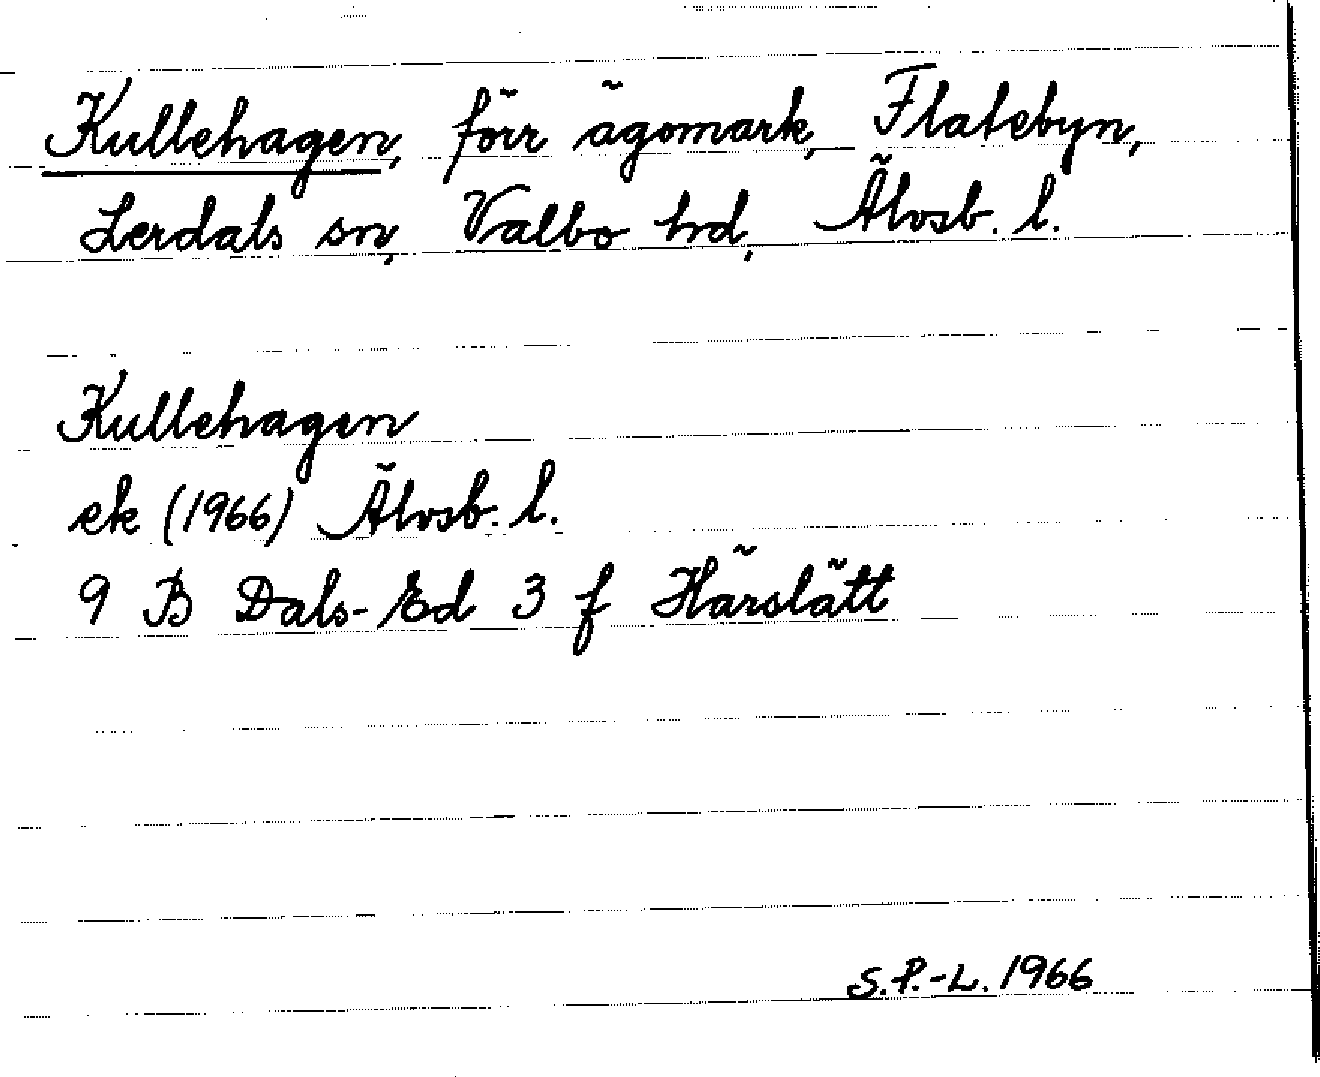 Kullehagen, förr ägomark, Flatebyn,
Lerdals sn, Valbo hd, Älvsb. l.
Kullehagen
ek (1966) Älvsb. l.
9 B Dals-Ed 3 f Härslätt
S.P.-L. 1966